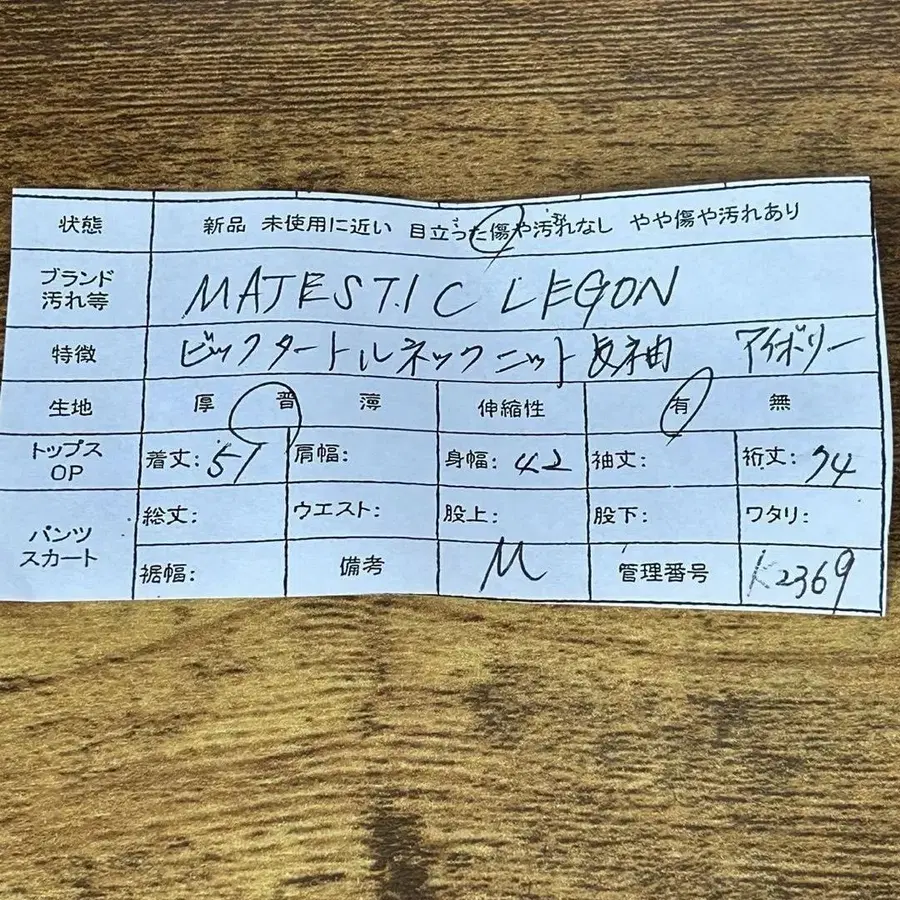 状態 新品 未使用に近い 目立った傷や汚れなし やや傷や汚れあり
ブランド
汚れ等 MAJESTIC LEGON
特徴 ビックタートルネックニット長袖 アイボリー
生地 厚 普 薄 伸縮性 有 無
トップス
OP 着丈:51 肩幅: 身幅:42 袖丈: 裄丈:74
パンツ
スカート 総丈: ウエスト: 股上: 股下: ワタリ:
裾幅: 備考 M 管理番号 K2369